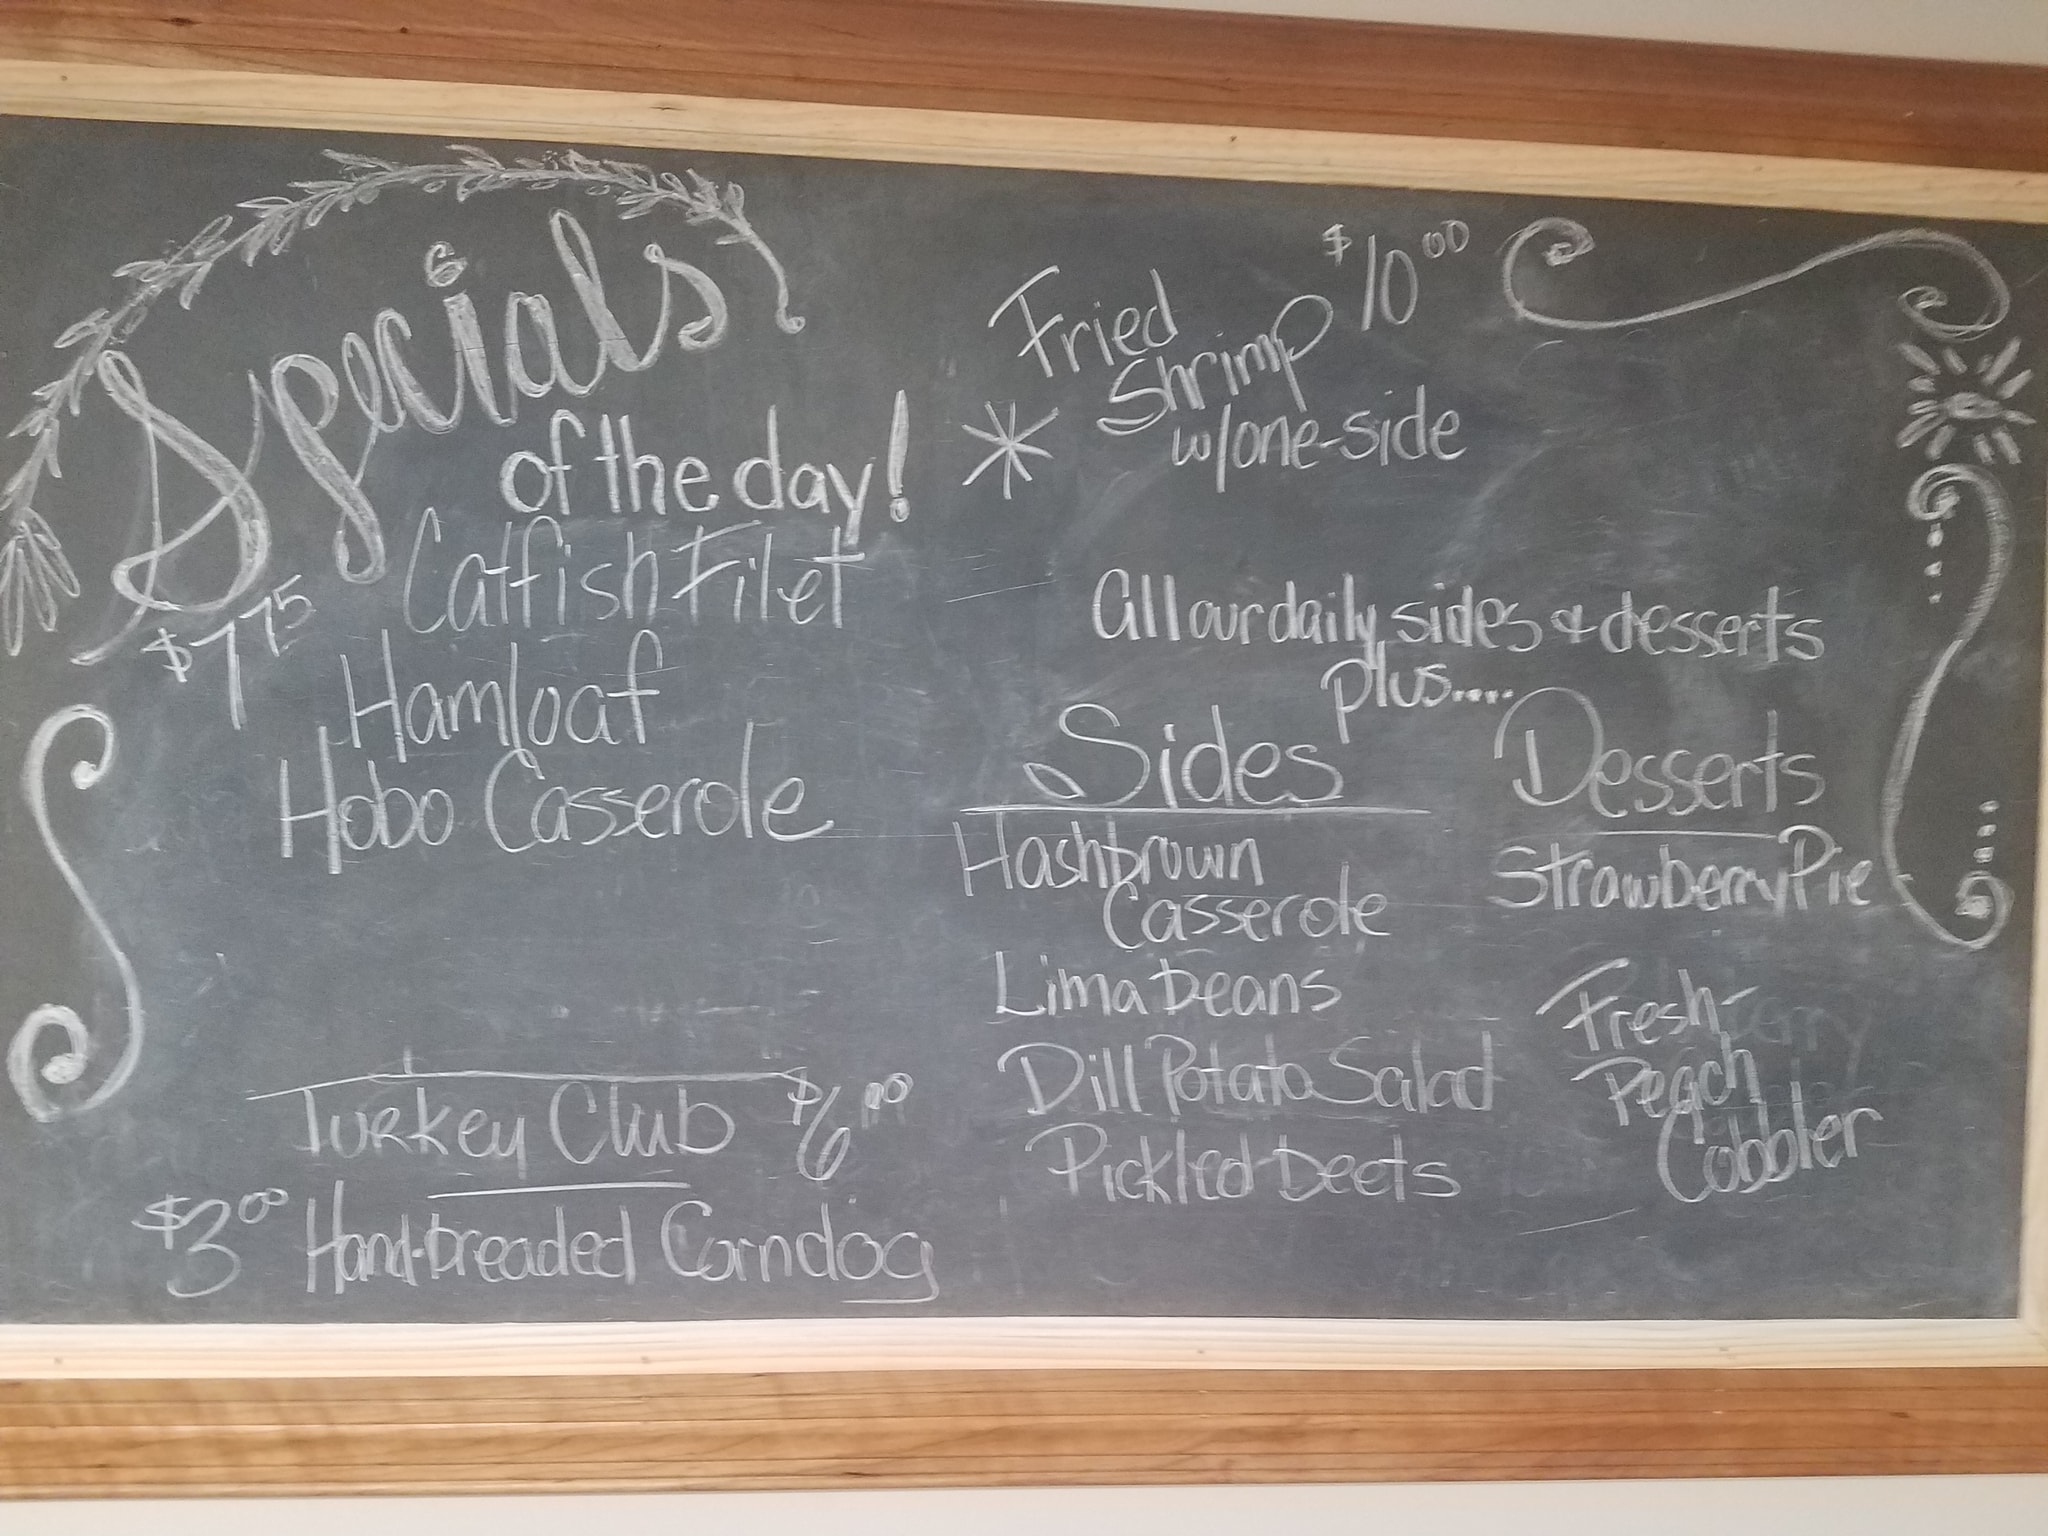 Specials
of the day!
$7.75
Catfish Filet
Hamloaf
Hobo Casserole
Turkey Club $6.00
$3.00 Hand-breaded Corndog
Fried $10.00
Shrimp
w/one-side
All our daily sides & desserts
plus....
Sides
Hashbrown
Casserole
Lima beans
Dill Potato Salad
Pickled beets
Desserts
Strawberry Pie
Fresh-
Peach
Cobbler